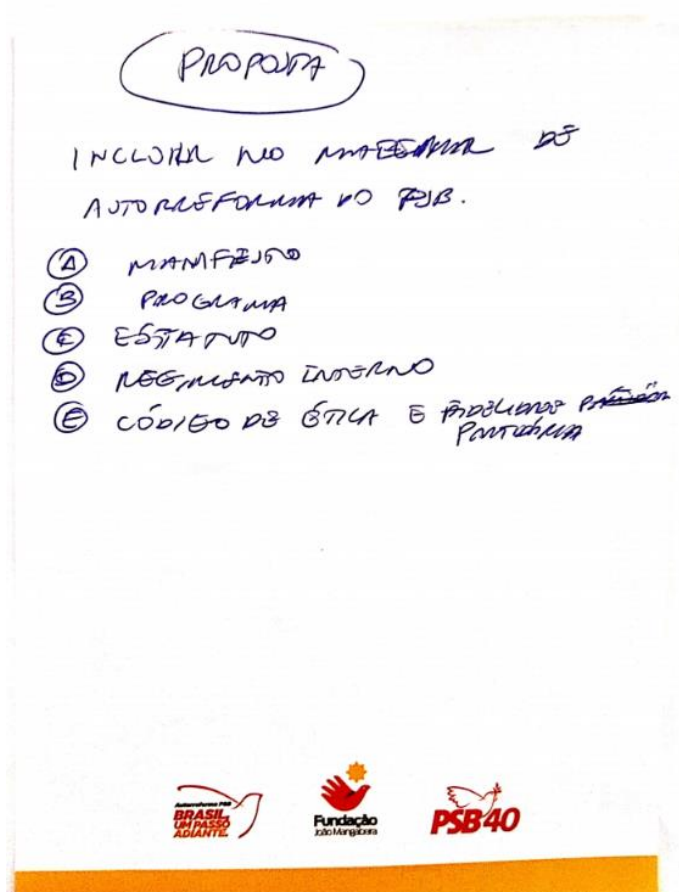 PROPOSTA
INCLUIR NO MATERIAL DE
AUTORREFORMA DO PSB.
A MANIFESTO
B PROGRAMA
C ESTATUTO
D REGIMENTO INTERNO
E CÓDIGO DE ÉTICA E FIDELIDADE
PARTIDÁRIA
Autorreforma PSB
BRASIL,
UM PASSO
ADIANTE.
Fundação
João Mangabeira
PSB 40